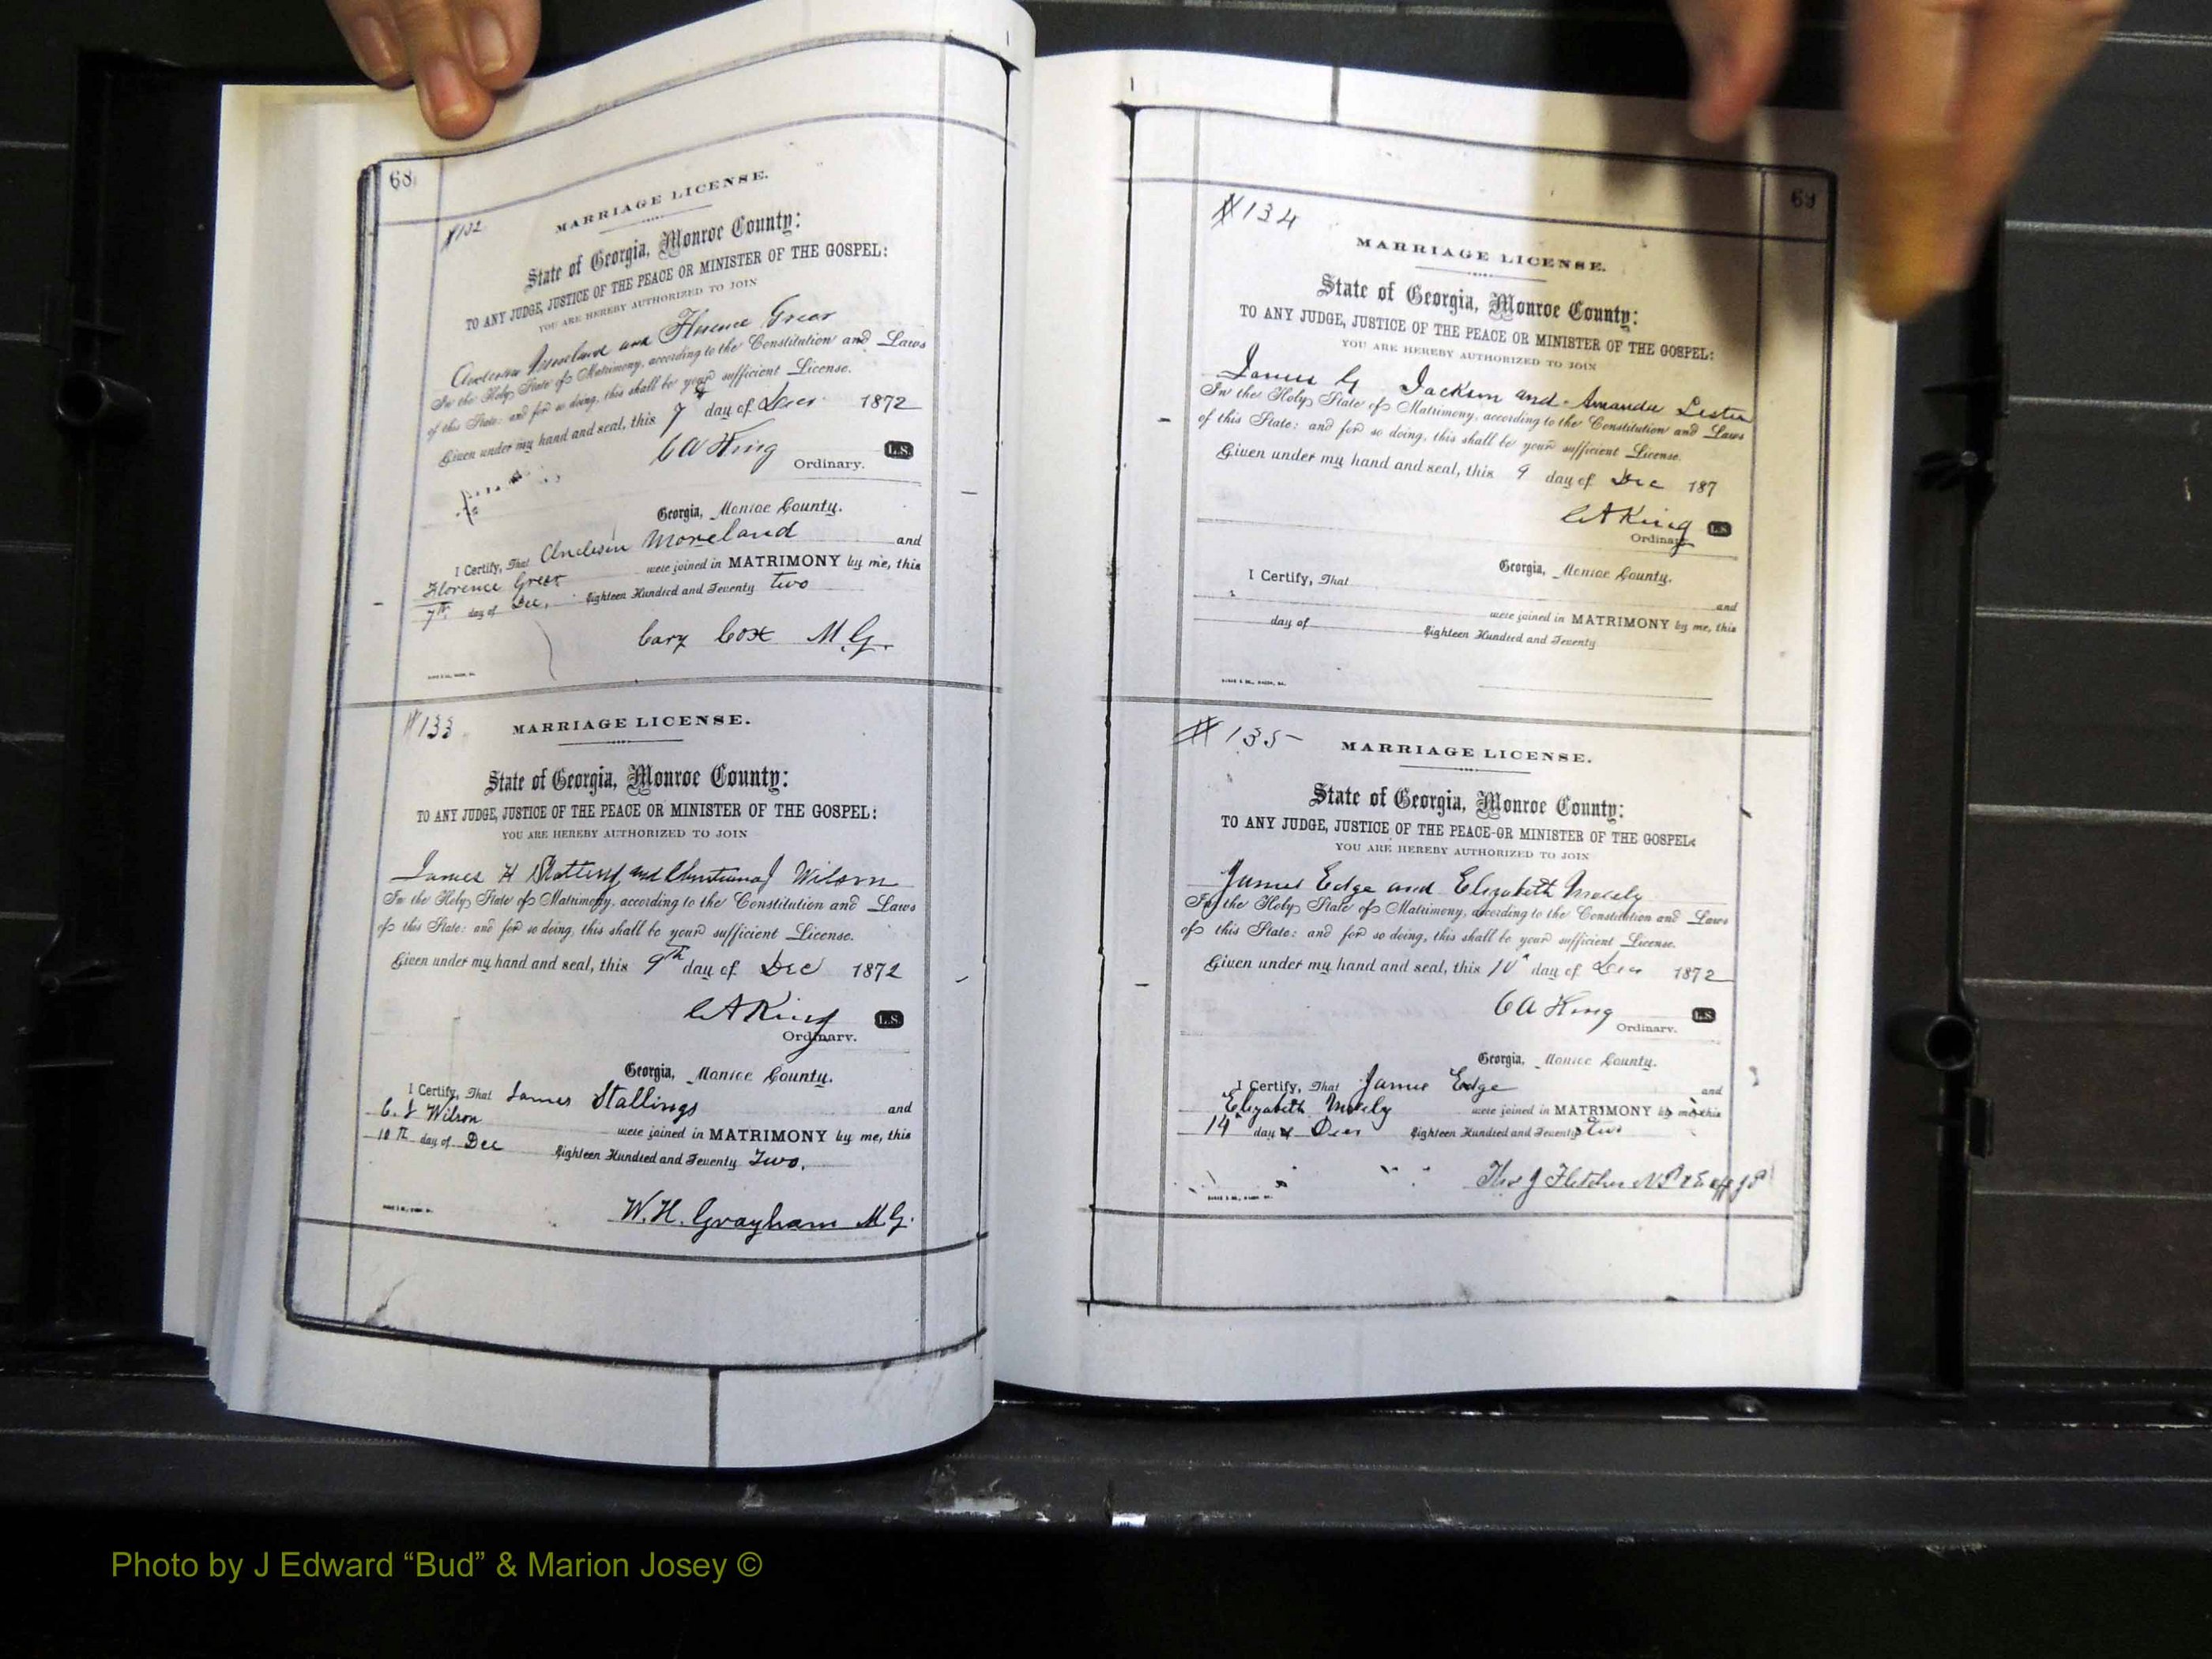 68
#132
MARRIAGE LICENSE.
State of Georgia, Monroe County:
TO ANY JUDGE, JUSTICE OF THE PEACE OR MINISTER OF THE GOSPEL:
YOU ARE HEREBY AUTHORIZED TO JOIN
and Florence Greer
In the Holy State of Matrimony, according to the Constitution and Laws
of this State: and for so doing, this shall be your sufficient License.
Given under my hand and seal, this 7 day of 1872
C A King L.S.
Ordinary.
Georgia, Monroe County.
I Certify, That Anderson Moreland and
Florence Greer were joined in MATRIMONY by me, this
7th day of Dec, Eighteen Hundred and Seventy two
Cary Cox M.G.
#133
MARRIAGE LICENSE.
State of Georgia, Monroe County:
TO ANY JUDGE, JUSTICE OF THE PEACE OR MINISTER OF THE GOSPEL:
YOU ARE HEREBY AUTHORIZED TO JOIN
James H Stallings and J Wilson
In the Holy State of Matrimony, according to the Constitution and Laws
of this State: and for so doing, this shall be your sufficient License.
Given under my hand and seal, this 9th day of Dec 1872
C A King L.S.
Ordinary.
Georgia, Monroe County.
I Certify, That James Stallings and
C. J Wilson were joined in MATRIMONY by me, this
10th day of Dec Eighteen Hundred and Seventy Two.
W. H. Grayham M.G.
69
#134
MARRIAGE LICENSE.
State of Georgia, Monroe County:
TO ANY JUDGE, JUSTICE OF THE PEACE OR MINISTER OF THE GOSPEL:
YOU ARE HEREBY AUTHORIZED TO JOIN
James G Jackson and Amanda Lester
In the Holy State of Matrimony, according to the Constitution and Laws
of this State: and for so doing, this shall be your sufficient License.
Given under my hand and seal, this 9 day of Dec 187
C A King L.S.
Ordinary
Georgia, Monroe County.
I Certify, That
and
were joined in MATRIMONY by me, this
day of Eighteen Hundred and Seventy
#135
MARRIAGE LICENSE.
State of Georgia, Monroe County:
TO ANY JUDGE, JUSTICE OF THE PEACE OR MINISTER OF THE GOSPEL:
YOU ARE HEREBY AUTHORIZED TO JOIN
James Edge and Elizabeth
In the Holy State of Matrimony, according to the Constitution and Laws
of this State: and for so doing, this shall be your sufficient License.
Given under my hand and seal, this 10" day of 1872
C A King L.S.
Ordinary.
Georgia, Monroe County.
I Certify, That James Edge and
Elizabeth were joined in MATRIMONY by me this
14" day of Eighteen Hundred and Seventy two
Thos J Fletcher N.P. & Ex off J P
Photo by J Edward “Bud” & Marion Josey ©